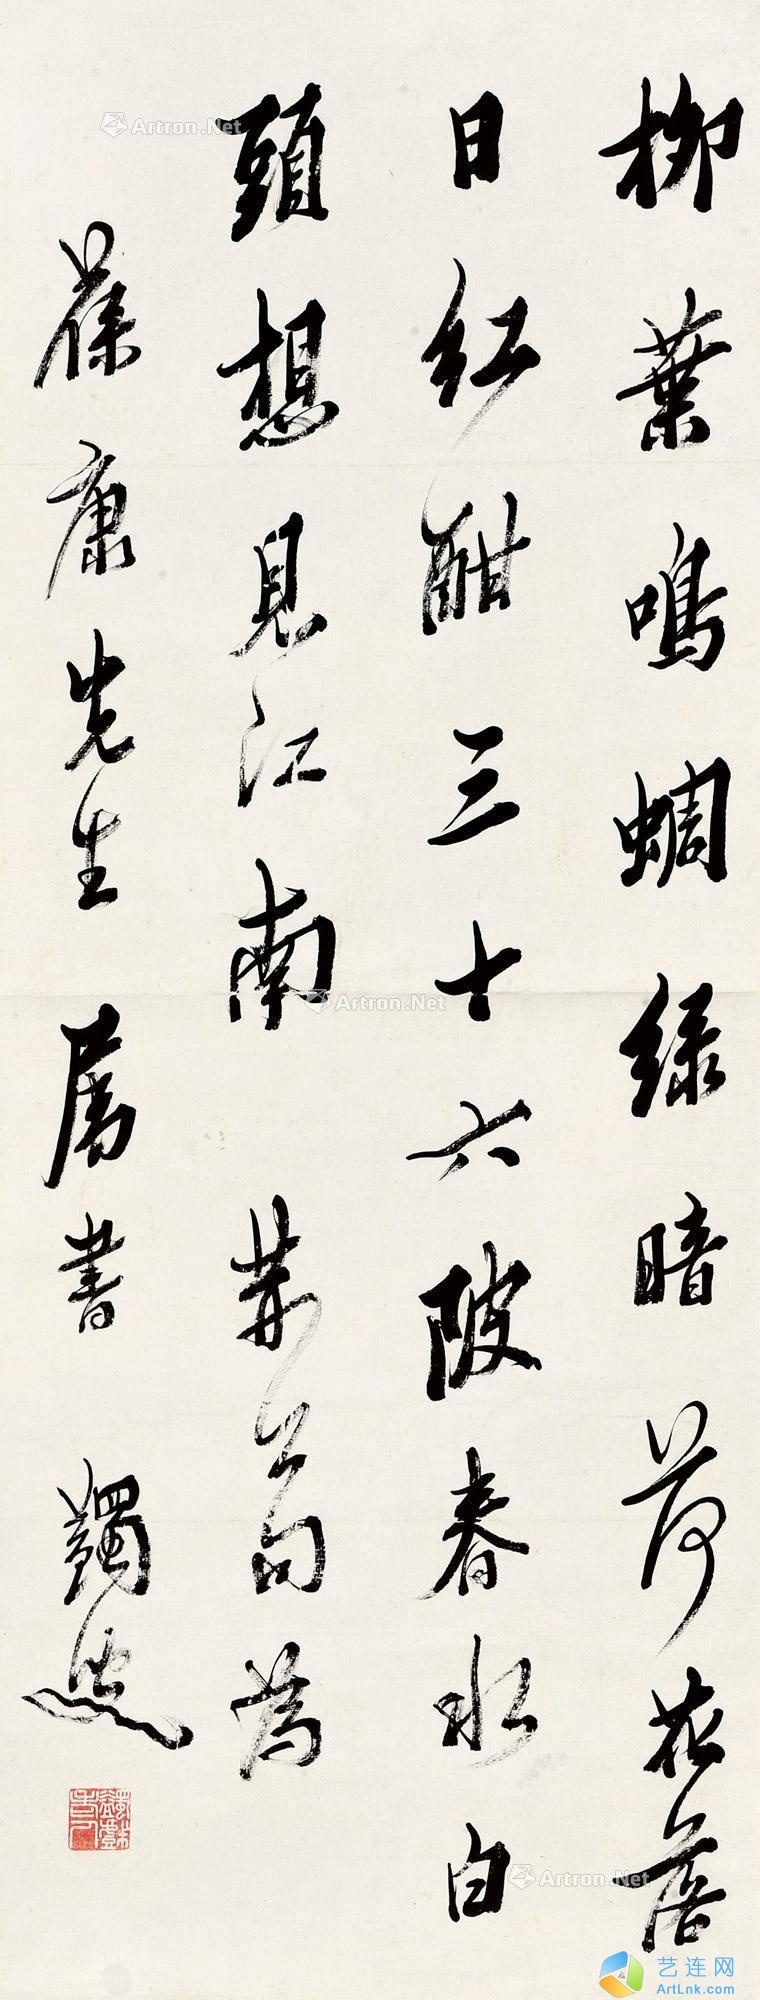 柳葉鳴蜩綠暗荷花落
日紅酣三十六陂春水白
頭想見江南 荊公句為
葆康先生屬書 蠲叟
Artron.Net
Artron.Net
Artron.Net
Artron.Net
艺连网
ArtLnk.com